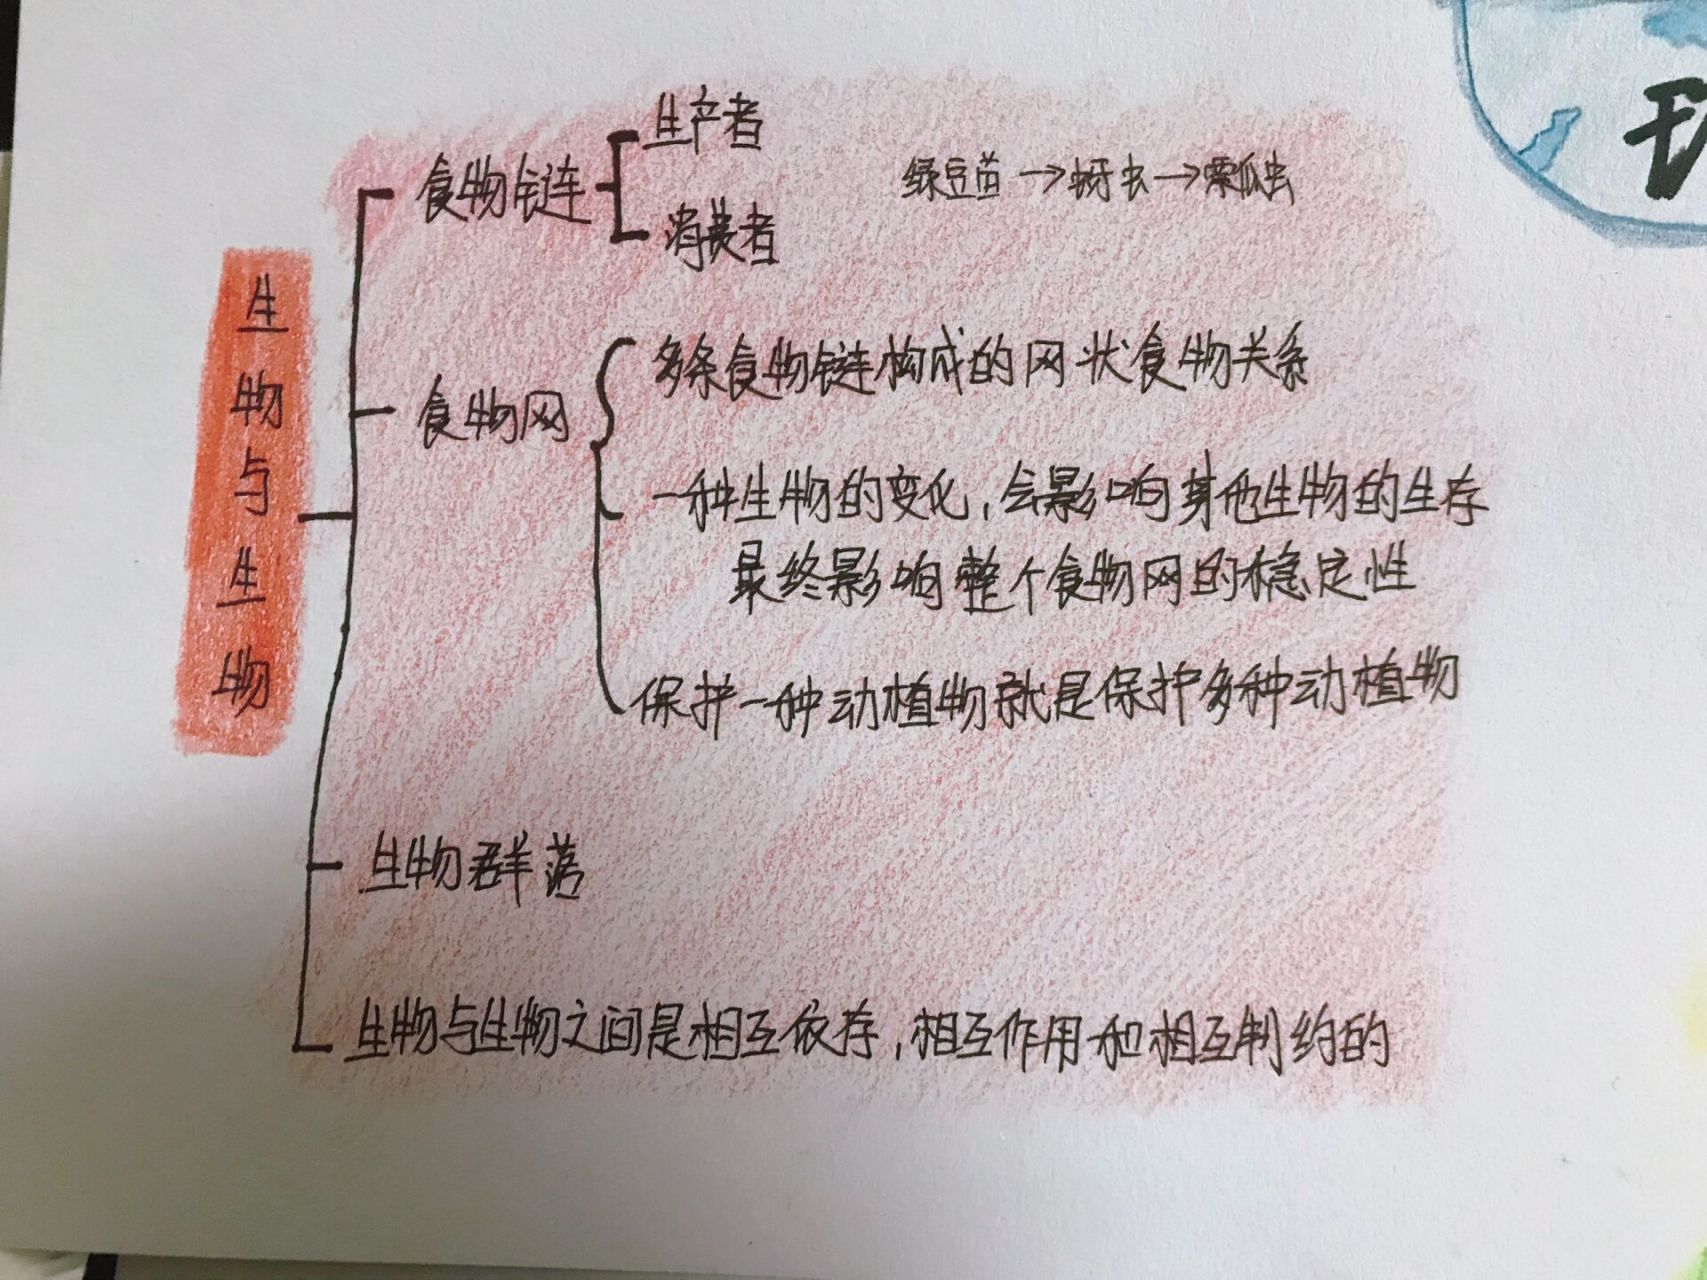 生物与生物
食物链
生产者
消费者
绿豆苗→蚜虫→瓢虫
食物网
多条食物链构成的网状食物关系
一种生物的变化,会影响其他生物的生存
最终影响整个食物网的稳定性
保护一种动植物就是保护多种动植物
生物群落
生物与生物之间是相互依存,相互作用和相互制约的